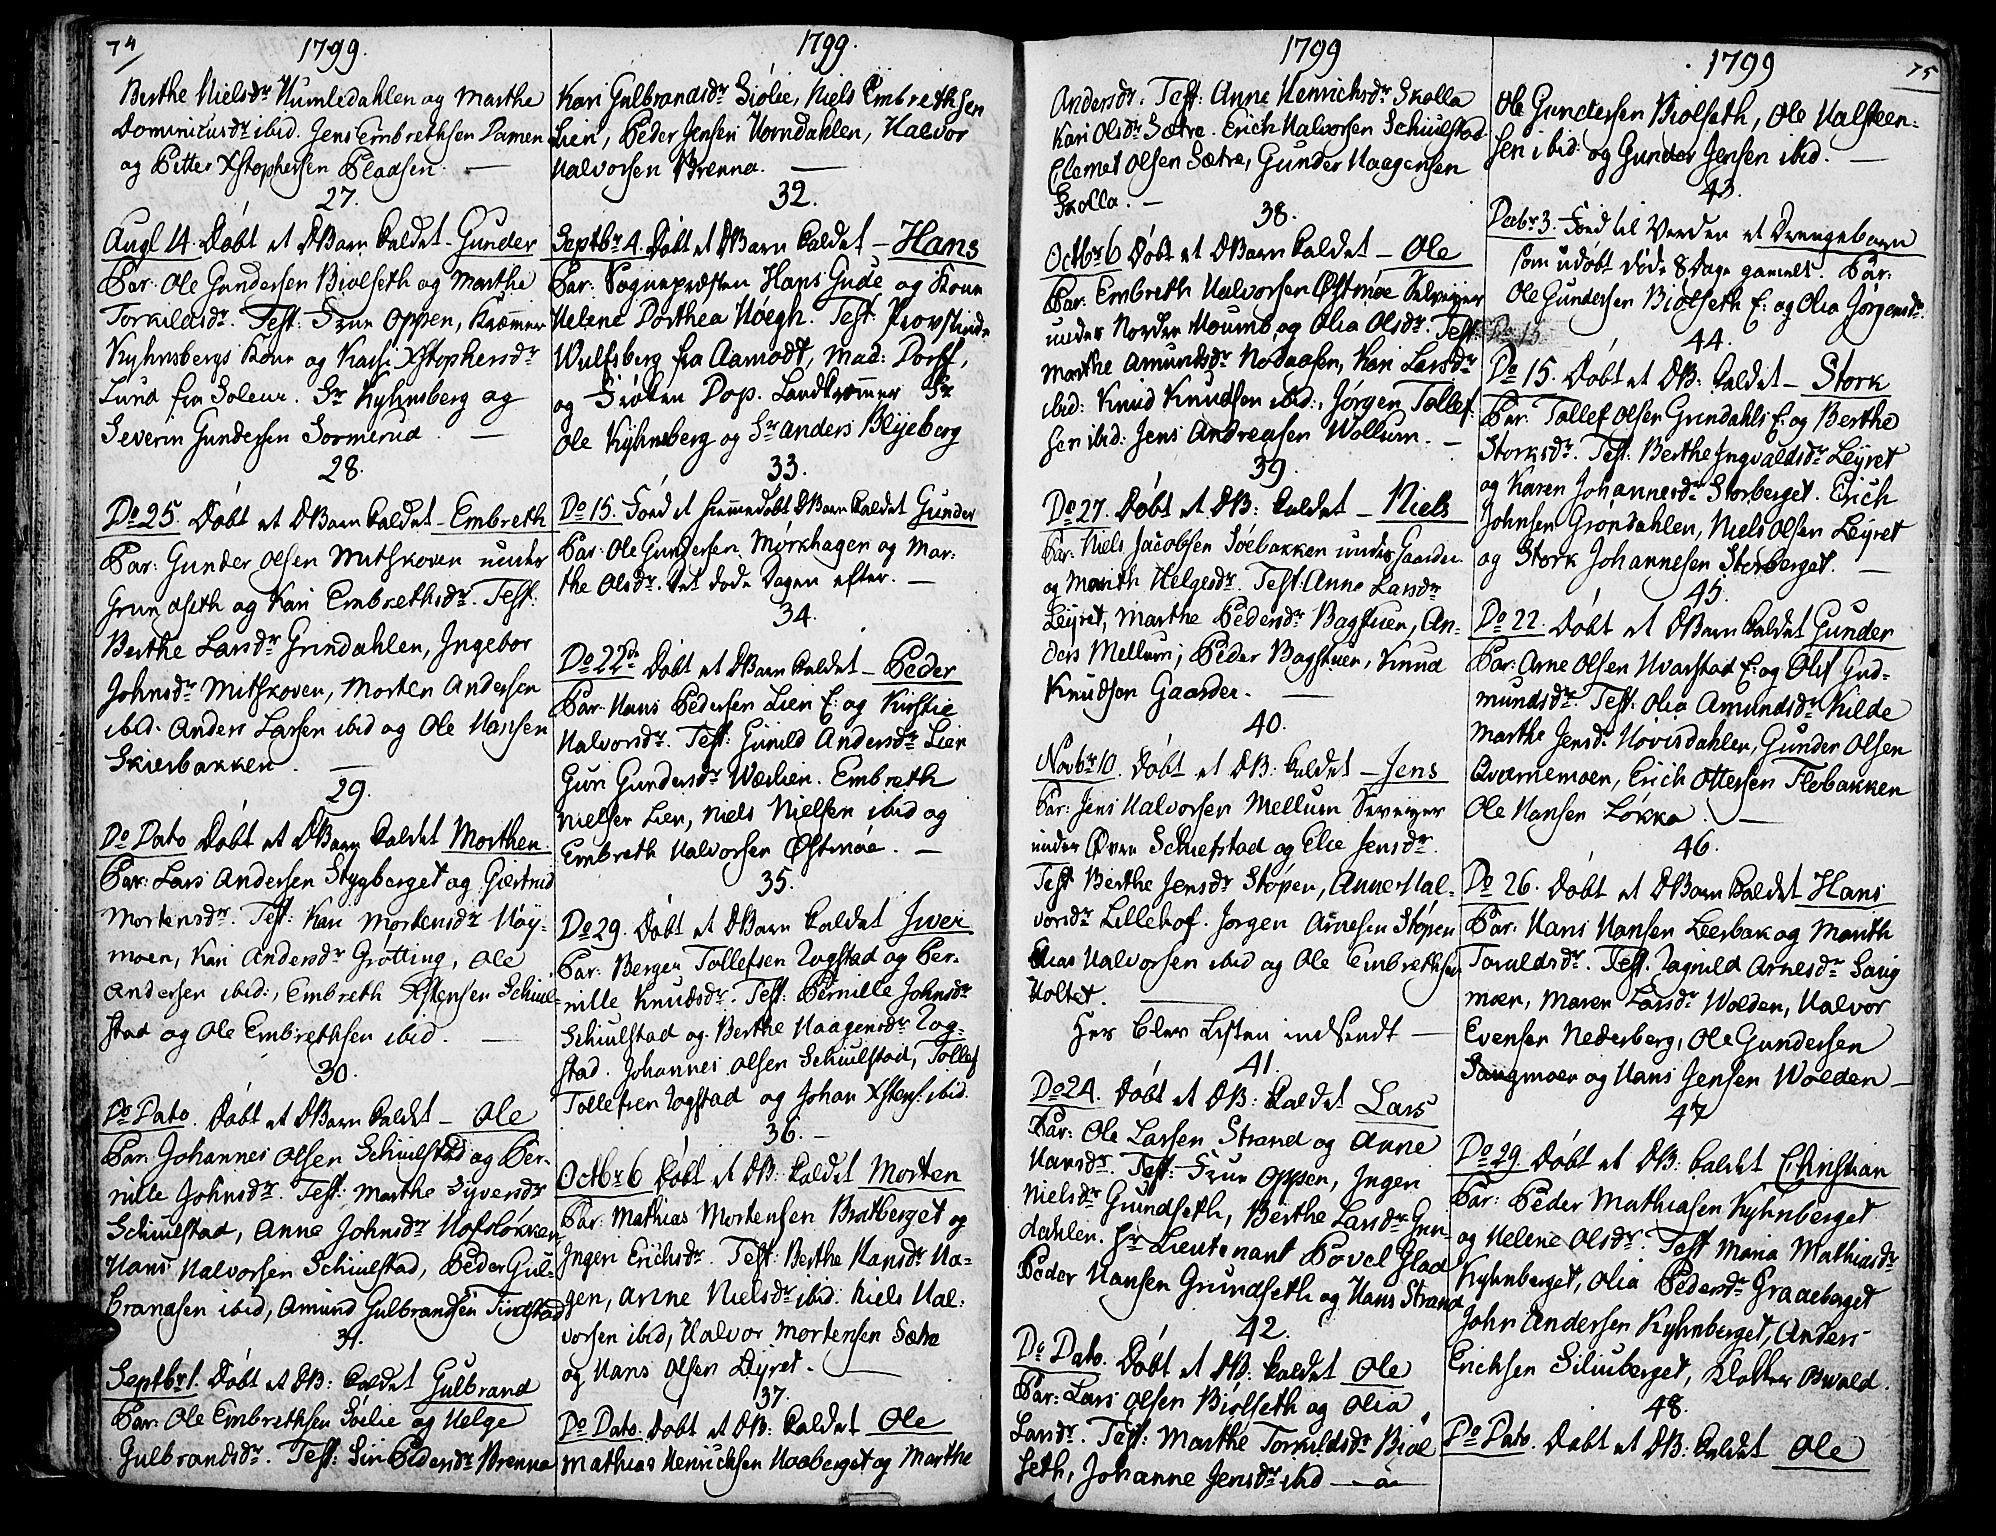 74
1799.
Berthe Nielsdr Humledahlen og Marthe
Dominicusdr ibid. Jens Embrethsen Damen
og Pitter Xstophersen Pladsen. —
27.
Augl 14. Døbt et DBarn kaldet - Gunder
Par: Ole Gundersen Biølseth og Marthe
Torkildsdr. Test: Frue Oppen, Kræmmer
Kyhnsbergs Kone og Kari Xstophersdr
Lund fra Soleur. Sr Kyhnsberg og
Severin Gundersen Sormerud. —
28.
Do 25. Døbt et DBarn kaldet - Embreth
Par: Gunder Olsen Mitskoven under
Grundseth og Kari Embrethsdr. Test:
Berthe Larsdr Grindahlen, Ingebor
Johnsdr Mitskoven, Morten Andersen
ibid. Anders Larsen ibid og Ole Hansen
Skierbakken. —
29.
Do Dato Døbt et DBarn kaldet Morthen.
Par: Lars Andersen Stygberget og Giertrud
Mortensdr. Test: Kari Mortensdr Høy-
moen, Kari Andersdr Grøtting, Ole
Andersen ibid:, Embreth Xstensen Schiul-
stad og Ole Embrethsen ibid. —
30.
Do Dato. Døbt et DBarn kaldet - Ole
Par: Johannes Olsen Schiulstad og Per-
nille Johnsdr. Test: Marthe Syversdr
Schiulstad, Anne Johnsdr Hofsløkken
Hans Halvorsen Schiulstad, Peder Gul-
brandsen ibid, Amund Gulbrandsen Findstad
31.
Septbr 1. Døbt et DB: kaldet Gulbrand
Par: Ole Embrethsen Sølie og Helge
Gulbrandsdr. Test: Siri Pedersdr Brenna
1799.
Kari Gulbrandsdr Siølie, Niels Embrethsen
Lien, Peder Jensen Horndahlen, Halvor
Halvorsen Brenna. —
32.
Septbr 4. Døbt et DBarn kaldet - Hans
Par: Sognepræsten Hans Gude og Kone
Helene Dorthea Høegh. Test: Provstinde
Wulfsberg fra Aamodt, Mad: Dorff,
og Frøken Dop. Landkræmmer Sr
Ole Kyhnsberg og Sr Anders Blyeberg
33.
Do 15. Fød et hiemmedøbt DBarn kaldet Gunder
Par: Ole Gundersen Mørkhagen og Mar-
the Olsdr. Det døde Dagen efter. —
34.
Do 22de Døbt et DBarn kaldet - Peder
Par: Hans Pedersen Lien E: og Kirstie
Halvorsdr. Test: Gunild Andersdr Lien
Guri Gundersdr Wælien. Embreth
Nielsen Lien, Niels Nielsen ibid og
Embreth Halvorsen Østmøe. —
35.
Do 29. Døbt et DBarn kaldet Iver
Par: Berger Tollefsen Zogstad og Per-
nille Knudsdr. Test: Pernille Johnsdr
Schiulstad og Berthe Haagensdr Zog-
stad. Johannes Olsen Schiulstad, Tollef
Tollefsen Zogstad og Johan Xstens: ibid.
36. —
Octbr 6 Døbt et DB: kaldet Morten
Par: Mathias Mortensen Bratberget og
Ingen Erichsdr. Test: Berthe Hansdr Ha-
gen, Anne Nielsdr ibid. Niels Hal-
vorsen ibid, Halvor Mortensen Sætre
og Hans Olsen Leyret. —
37.
Do Dato. Døbt et DB: kaldet Ole
Mathias Henrichsen Haaberget og Marthe
1799
Andersdr. Test: Anne Henrichsdr Skolla
Kari Olsdr Sætre. Erich Halvorsen Schiulstad
Elemet Olsen Sætre, Gunder Haagensen
Skolla. —
38.
Octbr 6 Døbt et DBarn kaldet - Ole
Par: Embreth Halvorsen Østmøe Selveyer
under Nordre Houmb og Olia Olsdr. Test
Marthe Amundsdr Nødaasen, Kari Larsdr
ibid: Knud Knudsen ibid:, Jørgen Tollef-
sen ibid: Jens Andreasen Wollum. —
39.
Do 27. Døbt et DB: kaldet - Niels
Par: Niels Jacobsen Søebakken under Gaarder
og Marith Helgesdr. Test: Anne Larsdr
Leyret, Marthe Pedersdr Bagstuen, An-
ders Mellum, Peder Bagstuen, Knud
Knudsen Gaarder. —
40.
Novbr 10. Døbt et DB: kaldet - Jens
Par: Jens Halvorsen Mellum Seveyer
under Øvre Schiefstad og Elie Jensdr.
Test Berthe Jensdr Støpen, Anne Hal-
vorsdr Lillehof. Jørgen Arnesen Støpen
Elias Halvorsen ibid og Ole Embrethsen
Holtet. —
Her blev Listen indsendt —
41.
Do 24. Døbt et DB: kaldet Lars
Par: Ole Larsen Strand og Anne
Hansdr. Test: Frue Oppen, Ingen
Nielsdr Grundseth, Berthe Larsdr Grin-
dahlen. Hr Lieutenant Povel Glad
Peder Hansen Grundseth og Hans Strand
42.
Do Dato. Døbt et DB: kaldet Ole
Par: Lars Olsen Biølseth og Olia
Larsdr. Test: Marthe Torkildsdr Biøl-
seth, Johanne Jensdr ibid —
75
1799
Ole Gundersen Biølseth, Ole Halsteen-
sen ibid. og Gunder Jensen ibid. —
43.
Decbr 3. Fød til Verden et Drengebarn
som udøbt døde 8 Dage gammelt. Par:
Ole Gundersen Biølseth E: og Olia Jørgensdr.
44.
Do 15. Døbt et DB: kaldet - Stork
Par: Tollef Olsen Grindahls E: og Berthe
Storksdr. Test: Berthe Ingvaldsdr Leyret
og Karen Johannesdr Storberget. Erich
Johnsen Grøndahlen, Niels Olsen Leyret
og Stork Johannesen Storberget. —
45.
Do 22. Døbt et DBarn kaldet Gunder
Par: Arne Olsen Hvarstad E: og Oliv Gud-
mundsdr. Test: Olia Amundsdr Kilde
Marthe Jensdr Hovisdahlen, Gunder Olsen
Qværnemoen, Erich Ottersen Flebakken
Ole Hansen Løkka. —
46.
Do 26. Døbt et DBarn kaldet Hans
Par: Hans Hansen Leerbak og Marith
Toruldsdr. Test. Zagnild Arnesdr Saug
moen, Maren Larsdr Wolden, Halvor
Evensen Nederberg, Ole Gundersen
Saugmoen og Hans Jensen Wolden —
47
Do 29 Døbt et DB: kaldet Christian
Par: Peder Mathiasen Kyhnberget
og Helene Olsdr. Test Maria Mathiasdr
Kyhnberget, Olia Pedersdr Graaberget
John Andersen Kyhnberget, Anders
Erichsen Siliuberget, Klokker Oswald.
48.
Do Dato. Døbt et DB: kaldet Ole